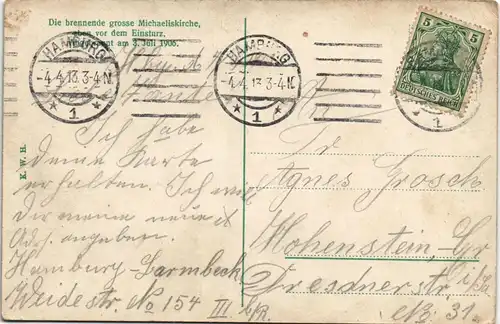 Die brennende grosse Michaeliskirche,
eben vor dem Einsturz.
am 3. Juli 1906.
HAMBURG
-4.4.13.3-4N
* 1 *
HAMBURG
-4.4.13.3-4N
* 1 *
5 5
DEUTSCHES REICH
1
E. W. H.
Ich habe
deine Karte
erhalten. Ich will
Dir meine neue
Adr. angeben.
Hamburg-Barmbeck
Weidestr. No 154 III
Fr
Agnes Grosch
Hohenstein-Er
Dresdnerstr. i/Sa
No. 31.